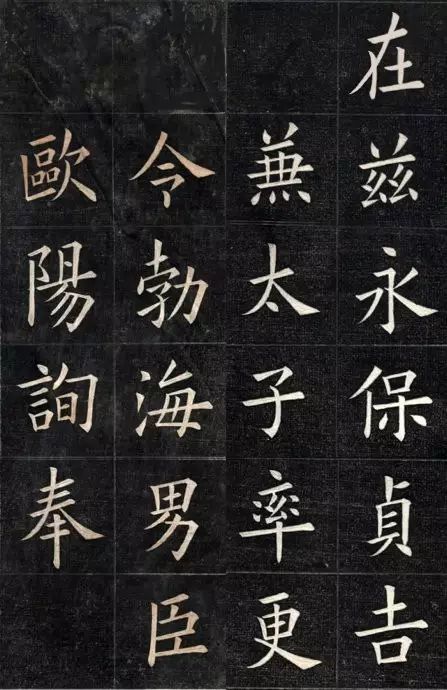 在兹永保貞吉
蕪太子率更
令勃海男臣
歐陽詢奉